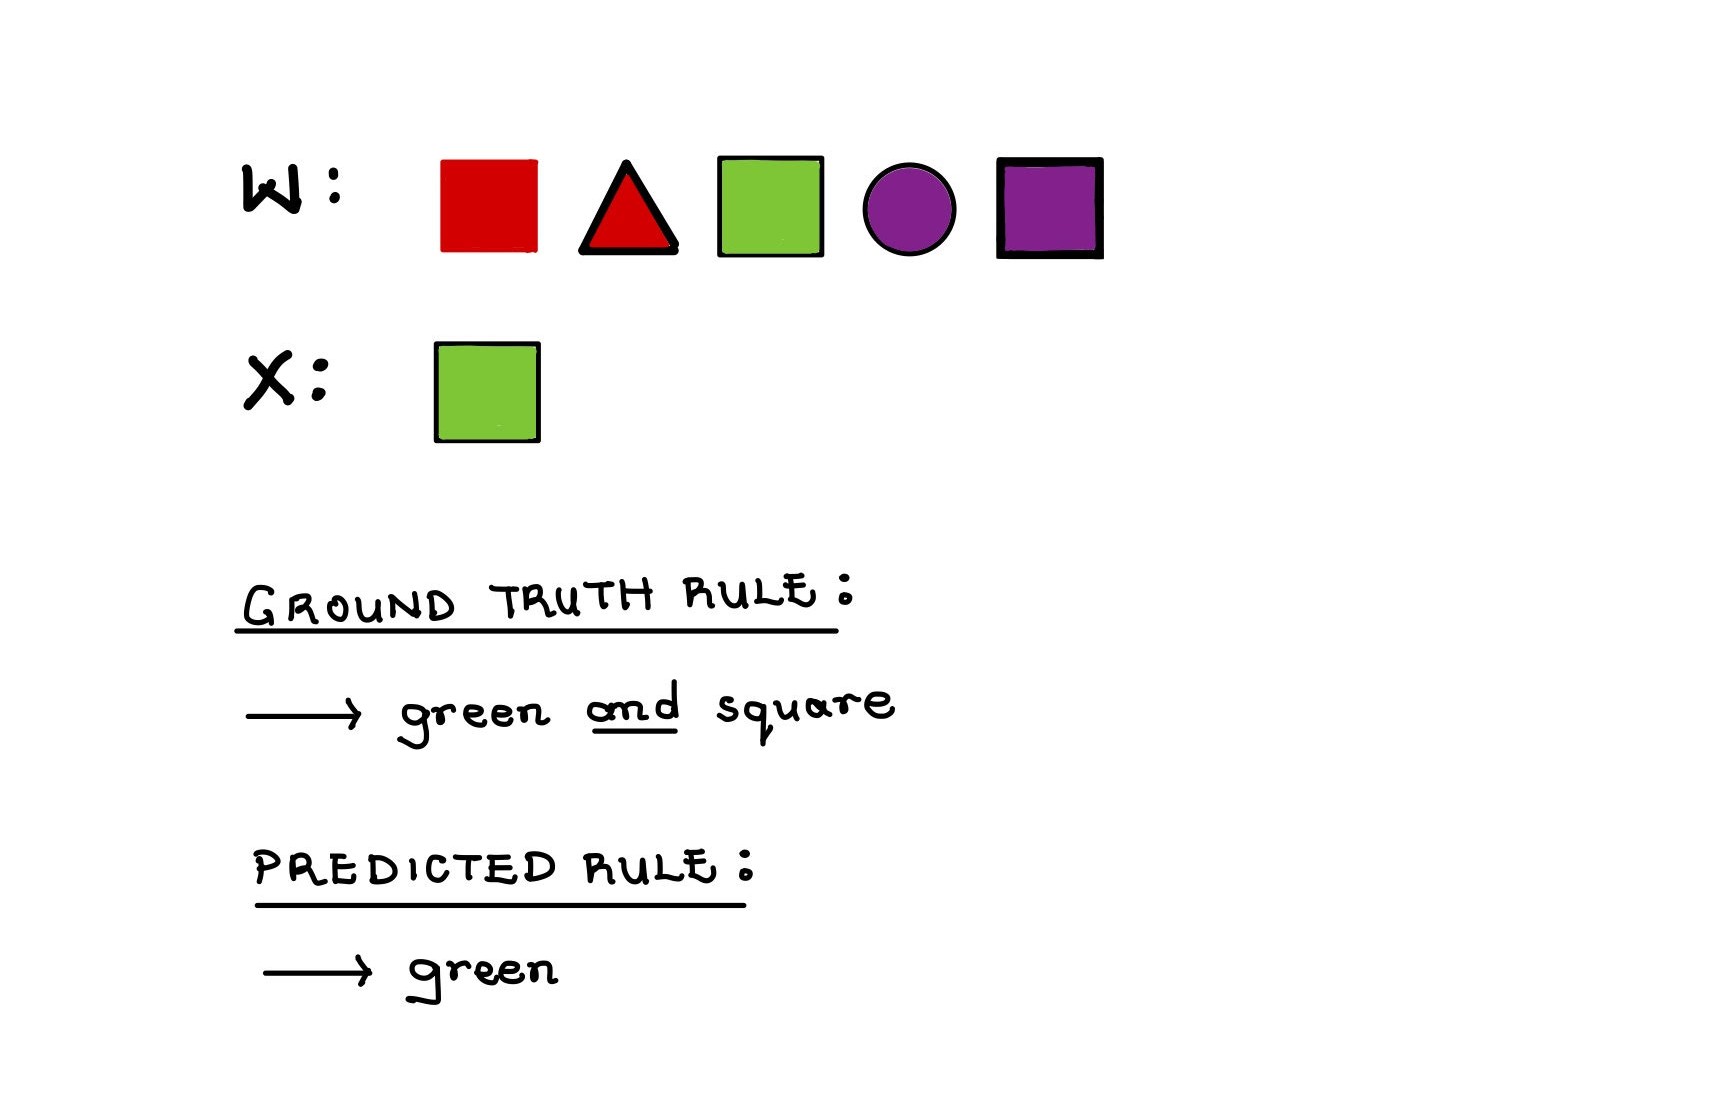 W:
X:
GROUND TRUTH RULE:
→ green and square
PREDICTED RULE:
→ green